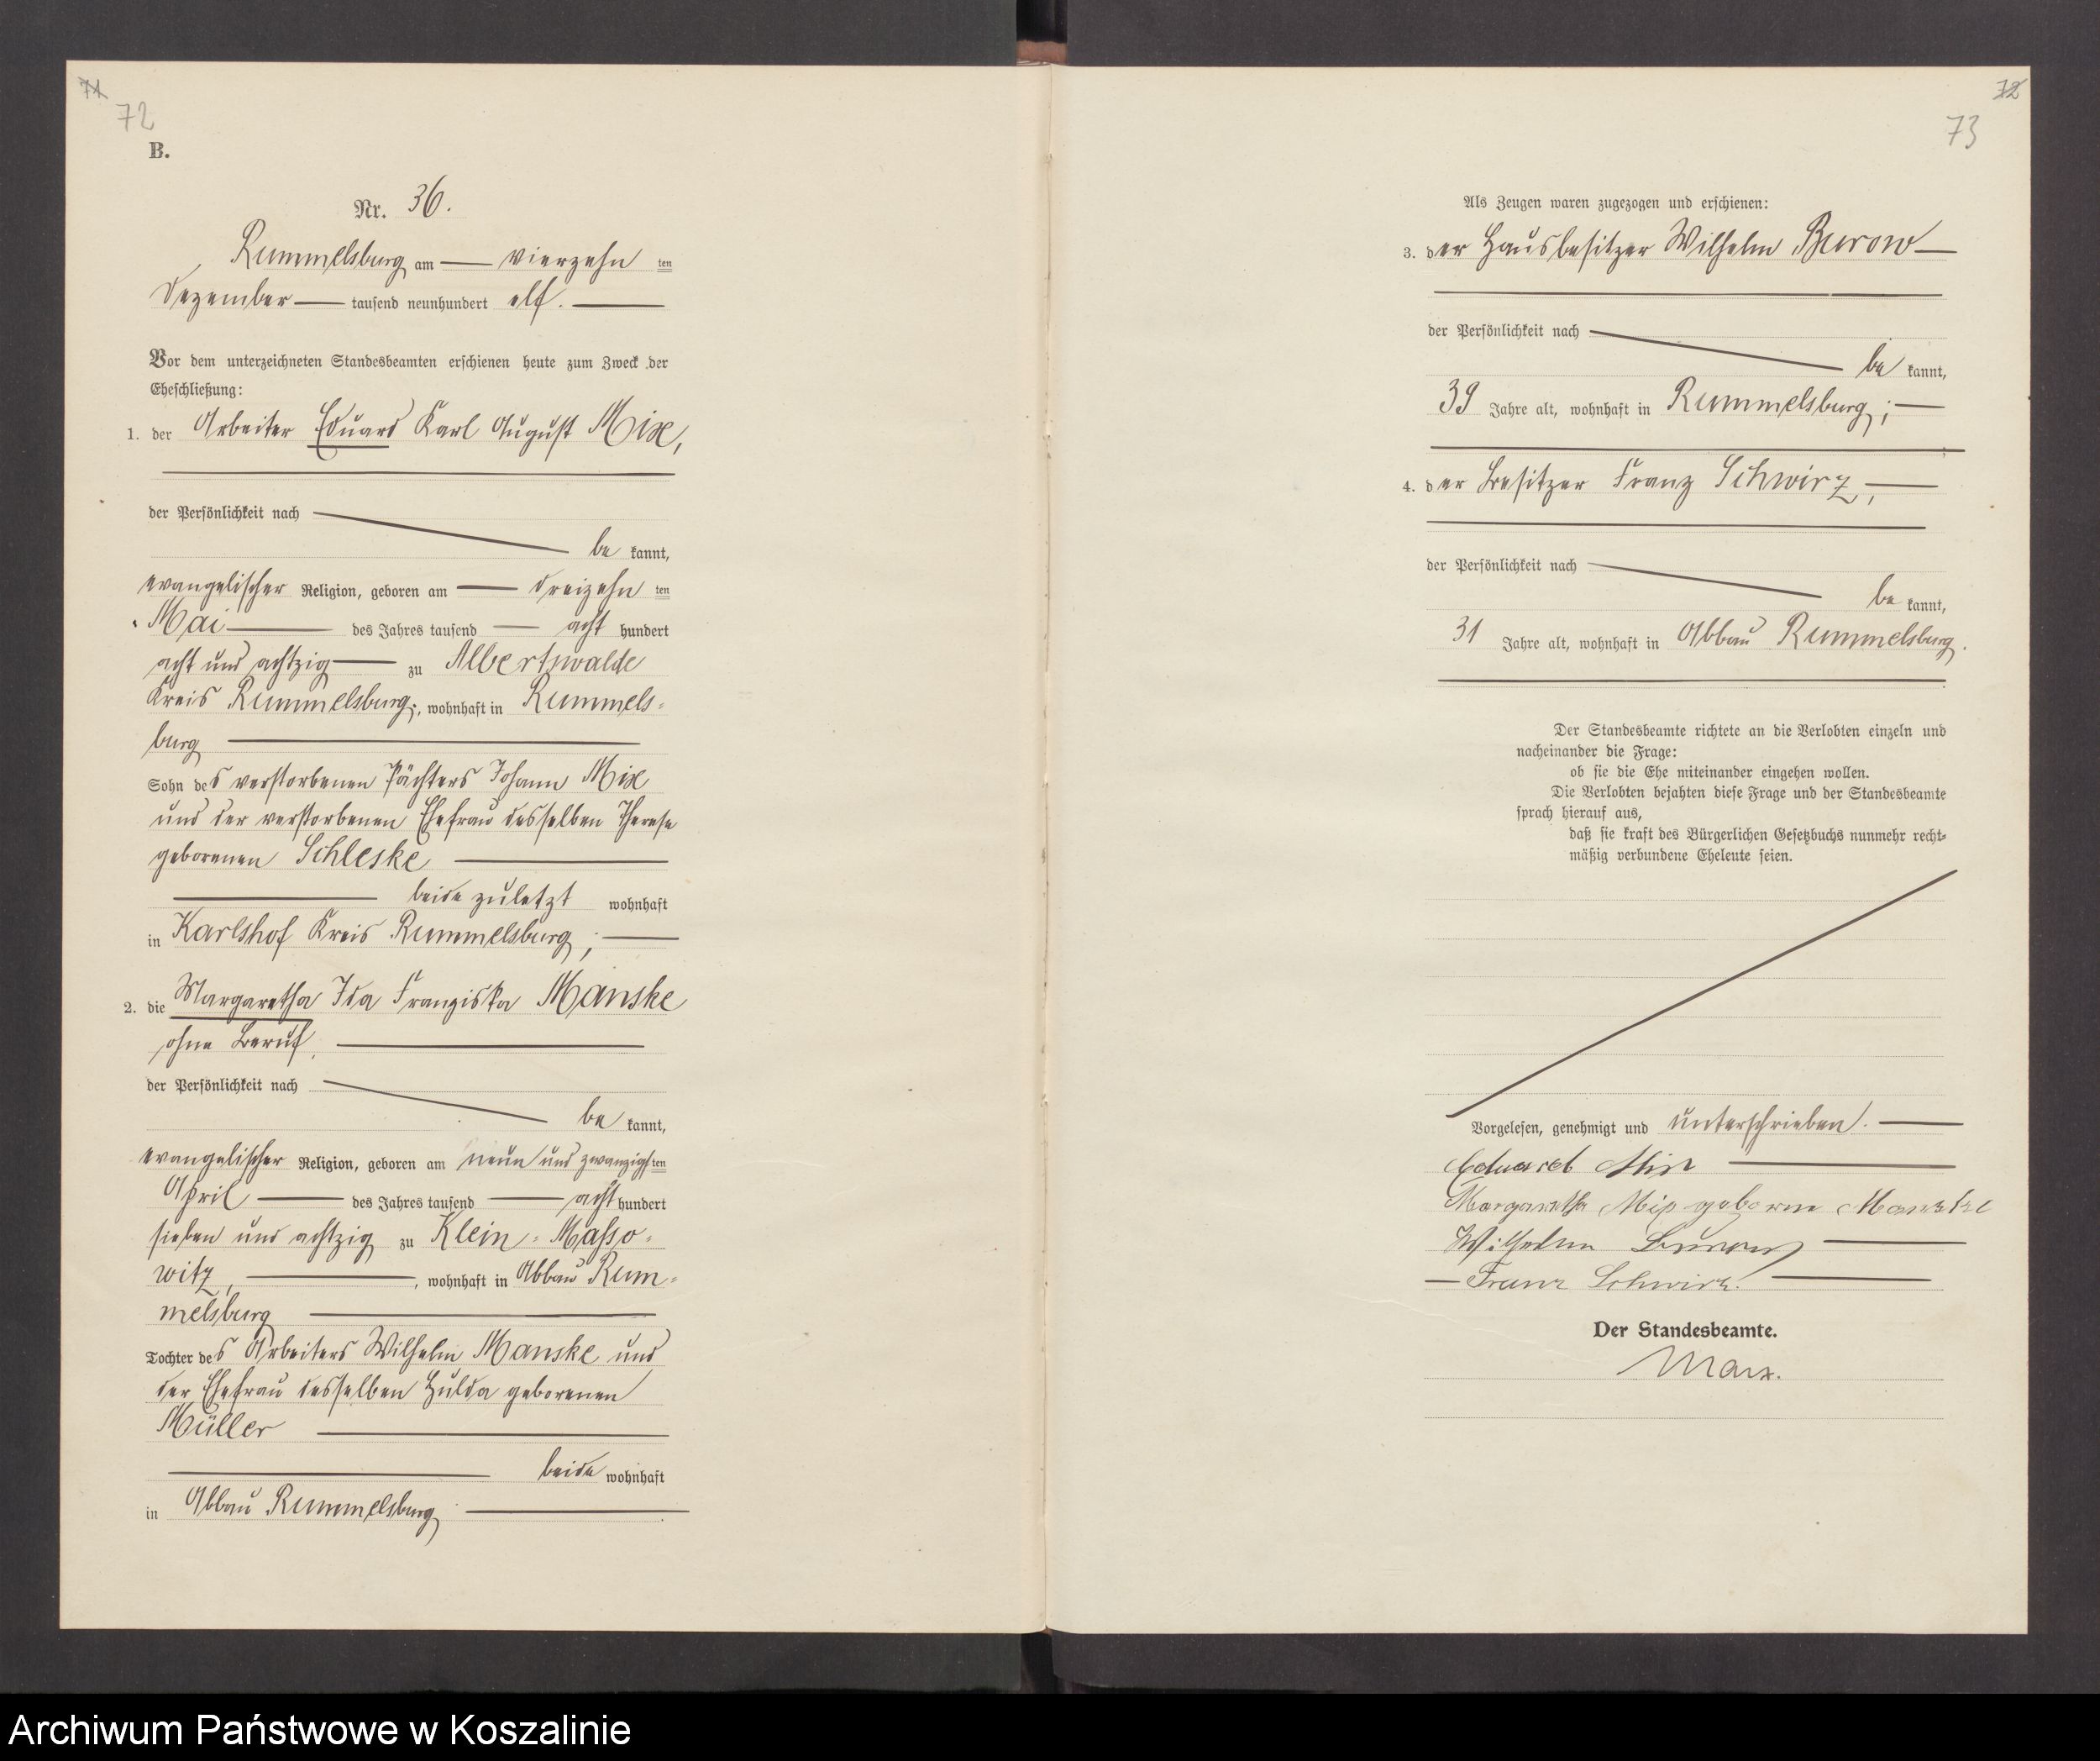 71
72
B.
Nr. 36.
Rummelsburg am — vierzehn ten
Dezember — tausend neunhundert elf. —
Vor dem unterzeichneten Standesbeamten erschienen heute zum Zweck der
Eheschließung:
1. der Arbeiter Eduard Karl August Mix,
der Persönlichkeit nach
be kannt,
evangelischer Religion, geboren am — dreizehn ten
Mai — des Jahres tausend — acht hundert
acht und achtzig — zu Albertswalde
Kreis Rummelsburg, wohnhaft in Rummels-
burg —
Sohn des verstorbenen Pächters Johann Mix
und der verstorbenen Ehefrau desselben Therese
geborenen Schleske —
— beide zuletzt wohnhaft
in Karlshof Kreis Rummelsburg; —
2. die Margaretha Ida Franziska Manske
ohne Beruf, —
der Persönlichkeit nach
be kannt,
evangelischer Religion, geboren am neun und zwanzigsten
April — des Jahres tausend — acht hundert
sieben und achtzig zu Klein-Masso-
witz, —, wohnhaft in Abbau Rum-
melsburg —
Tochter des Arbeiters Wilhelm Manske und
der Ehefrau desselben Hulda geborenen
Müller —
— beide wohnhaft
in Abbau Rummelsburg —
72
73
Als Zeugen waren zugezogen und erschienen:
3. der Hausbesitzer Wilhelm Burow —
der Persönlichkeit nach
be kannt,
39 Jahre alt, wohnhaft in Rummelsburg; —
4. der Besitzer Franz Schwirz, —
der Persönlichkeit nach
be kannt,
31 Jahre alt, wohnhaft in Abbau Rummelsburg.
Der Standesbeamte richtete an die Verlobten einzeln und
nacheinander die Frage:
ob sie die Ehe miteinander eingehen wollen.
Die Verlobten bejahten diese Frage und der Standesbeamte
sprach hierauf aus,
daß sie kraft des Bürgerlichen Gesetzbuchs nunmehr recht-
mäßig verbundene Eheleute seien.
Vorgelesen, genehmigt und unterschrieben. —
Eduard Mix —
Margaretha Mix geborene Manske
Wilhelm Burow —
— Franz Schwirz. —
Der Standesbeamte.
Marx.
Archiwum Państwowe w Koszalinie